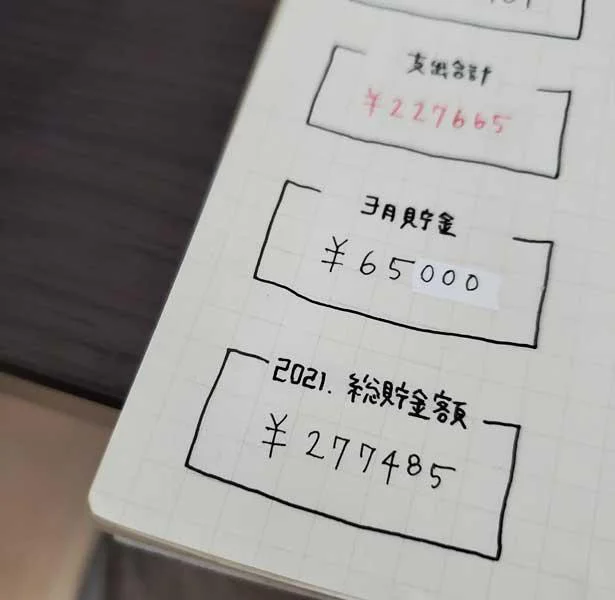 支出合計
¥227665
3月貯金
¥65000
2021. 総貯金額
¥277485